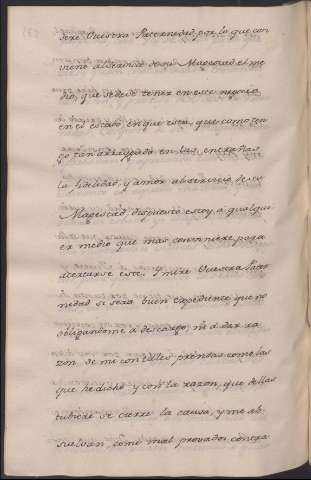 dere Vuestra Paternidad por lo que con
viene al servicio de su Magestad el me
dio, que se deve tener en este negocio
en el estado en que esta, que como ten
go tan arraygado en las entrañas
la fidelidad, y amor al servicio de su
Magestad, dispuesto estoy, a qualqui
er medio que mas conviniere para
acercarse este. Y mire Vuestra Pater
nidad si sera buen expediente que no
obligandome a descargo, ni a dar ra
zon de mi con tales prendas como las
que he dicho y con la razon, que dellas
tubiere se cierre la causa, y me ab
suelvan, como mal provados contra